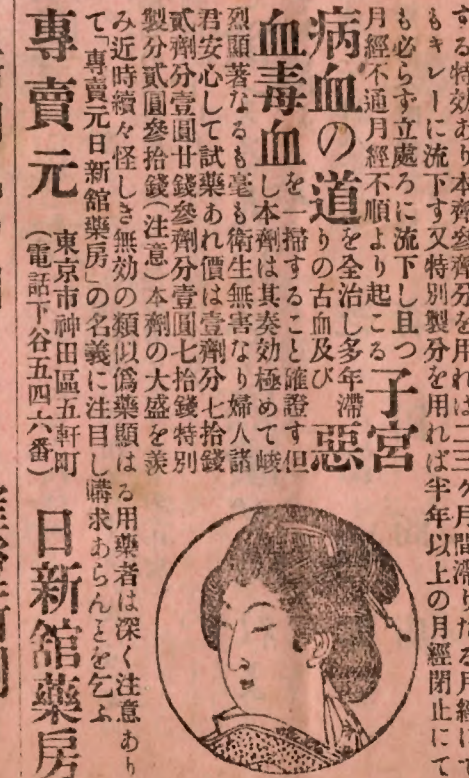 する特効あり本劑參劑分を用れは二三ヶ月間滯りたる月經にて
もキレーに流下す又特別製分を用れば半年以上の月經閉止にて
も必らず立處ろに流下し且つ
月經不通月經不順より起こる
子宮
病血の道
を全治し多年滯
りの古血及び
惡
血毒血
を一掃すること確證す但
し本劑は其奏効極めて峻
烈顯著なるも毫も衛生無害なり婦人諸
君安心して試藥あれ價は壹劑分七拾錢
貳劑分壹圓廿錢參劑分壹圓七拾錢特別
製分貳圓參拾錢(注意)本劑の大盛を羨
み近時續々怪しき無効の類似僞藥顯はる用藥者は深く注意あり
て「專賣元日新舘藥房」の名義に注目し購求あらんことを乞ふ
專賣元
東京市神田區五軒町
(電話下谷五四六番)
日新舘藥房